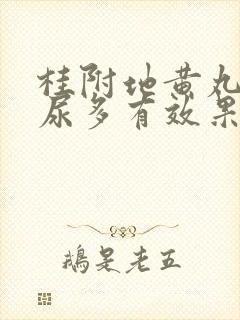 桂附地黄丸
尿多有效果
鵝是老五